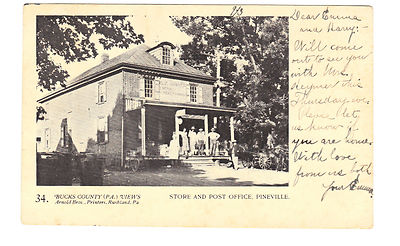 Dear Emma
and Harry:-
Will come
out to see you
with Mrs.
this
Thursday eve.
Please let
us know if
you are home.
With love
from us both
Your Emma.
34. BUCKS COUNTY (PA.) VIEWS
Arnold Bros., Printers, Rushland, Pa.
STORE AND POST OFFICE, PINEVILLE.